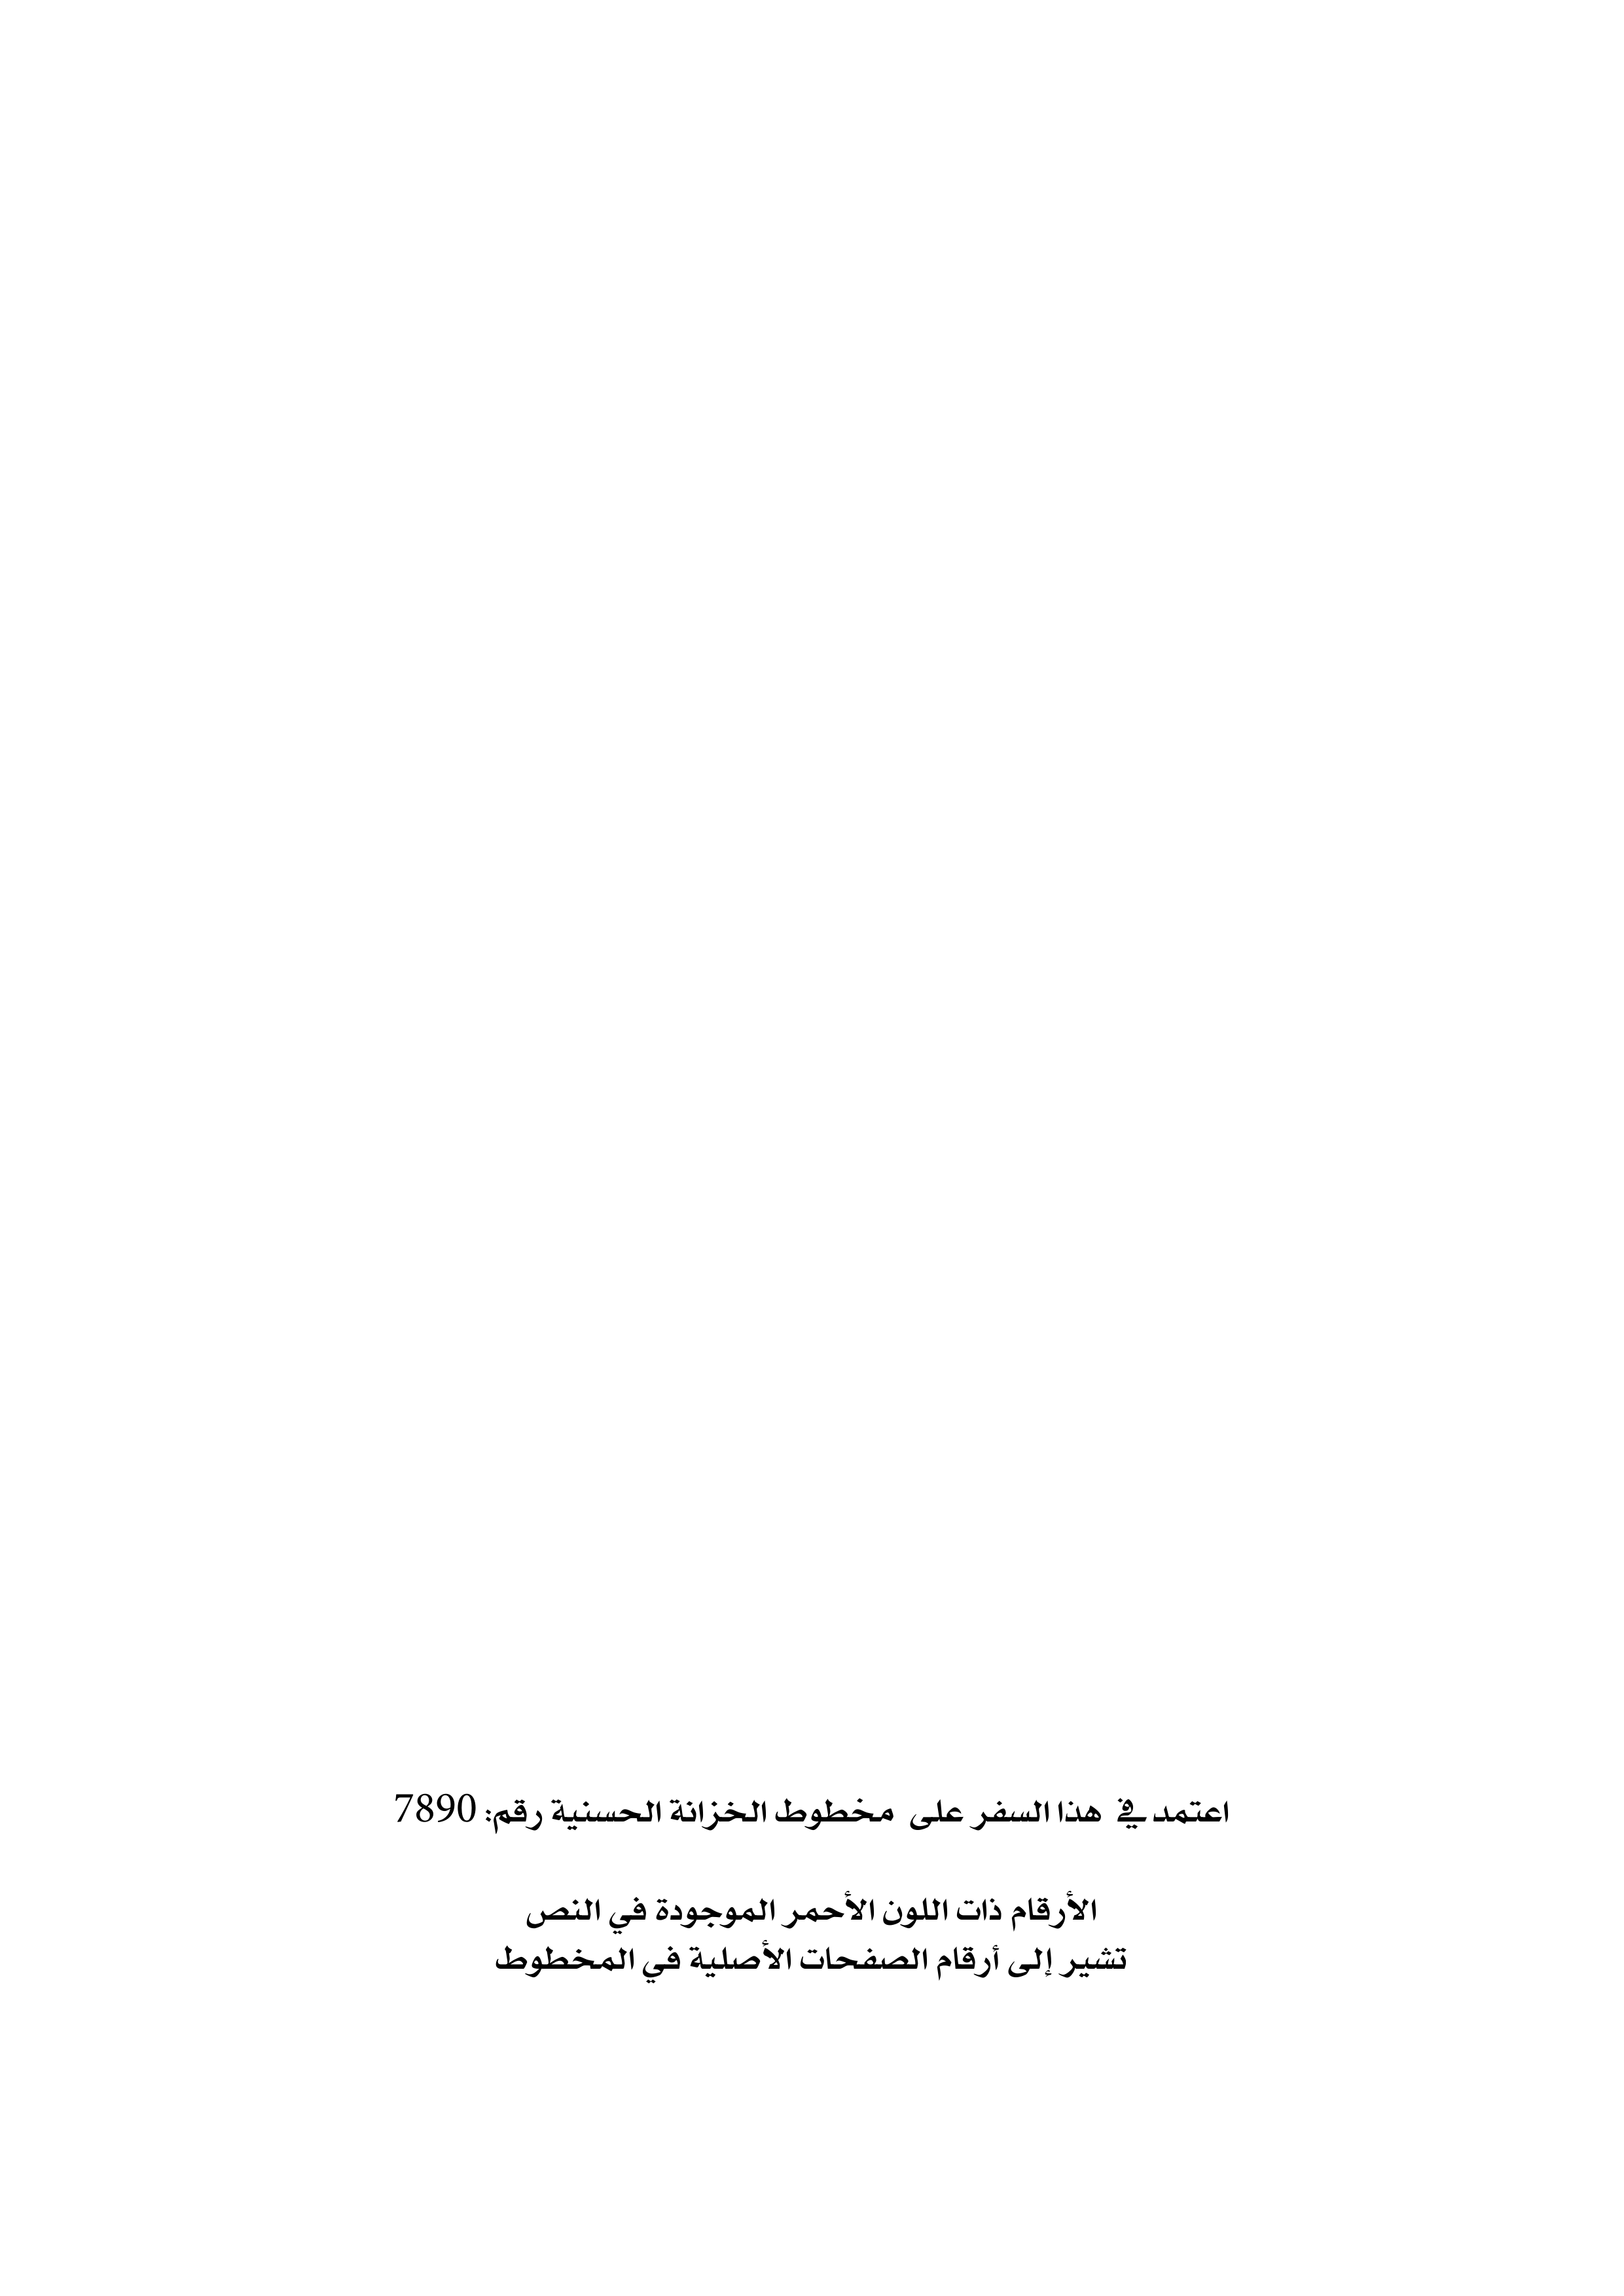 اعتمد في هذا السفر على مخطوط الخزانة الحسنية رقم: 7890
الأرقام ذات اللون الأحمر الموجودة في النص
تشير إلى أرقام الصفحات الأصلية في المخطوط